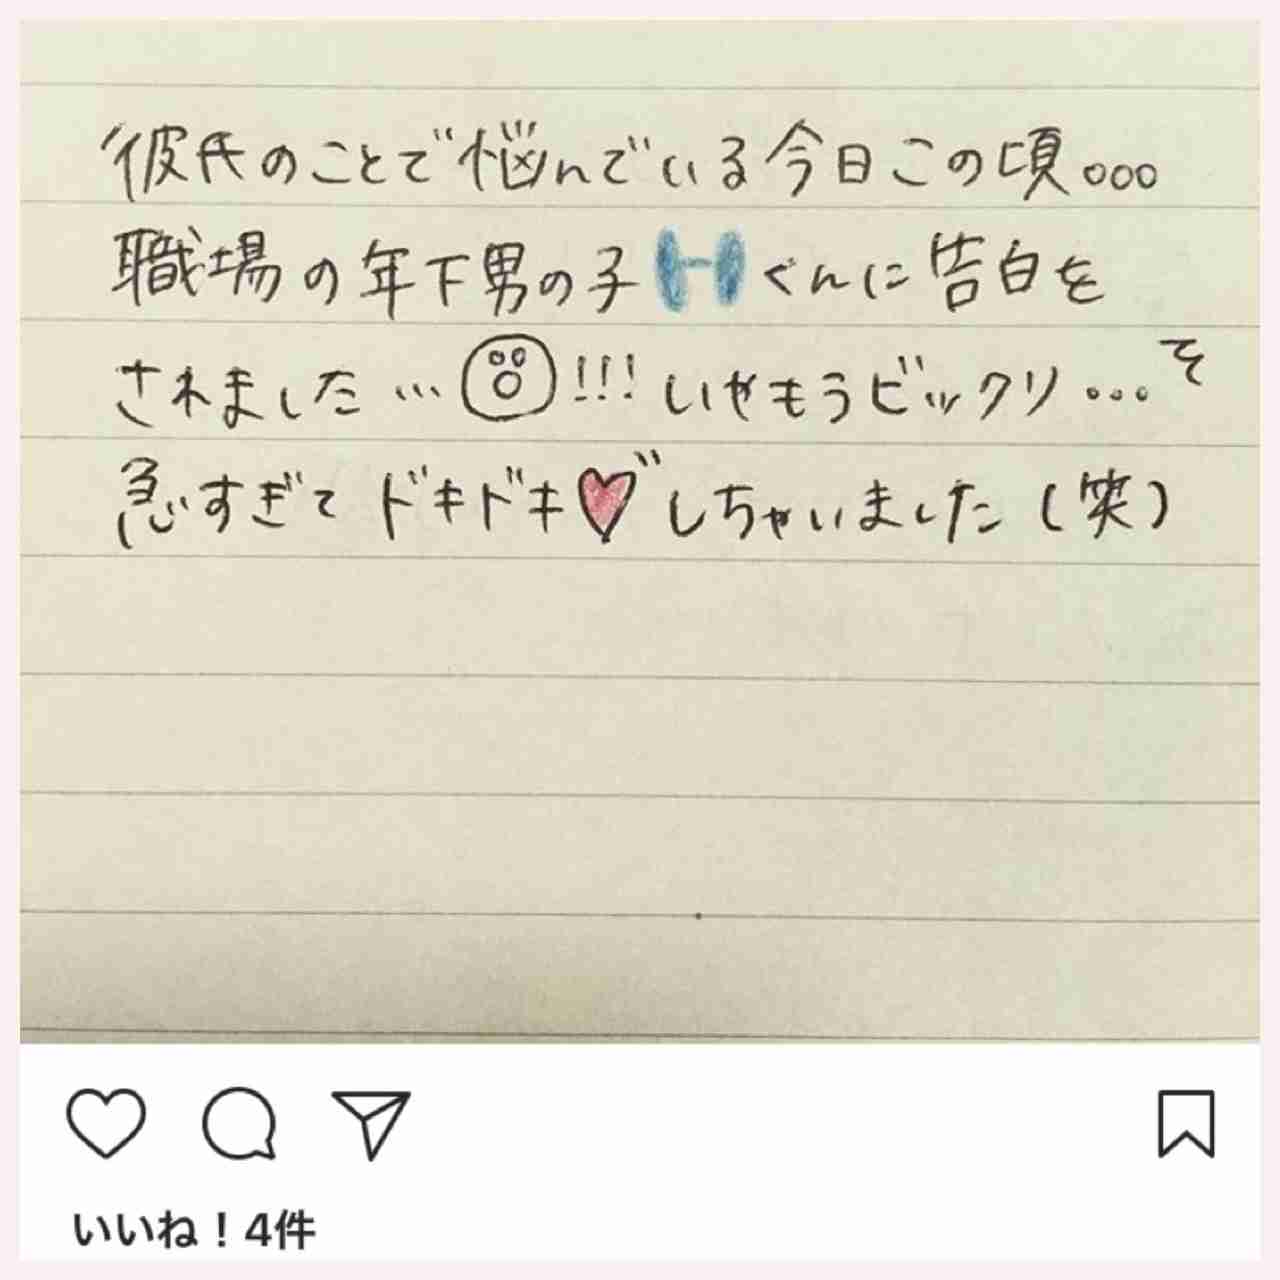 彼氏のことで悩んでいる今日この頃。。。
職場の年下男の子Hくんに告白を
されました…!!!いやもうビックリ...そ
急すぎてドキドキ♥しちゃいました(笑)
いいね!4件